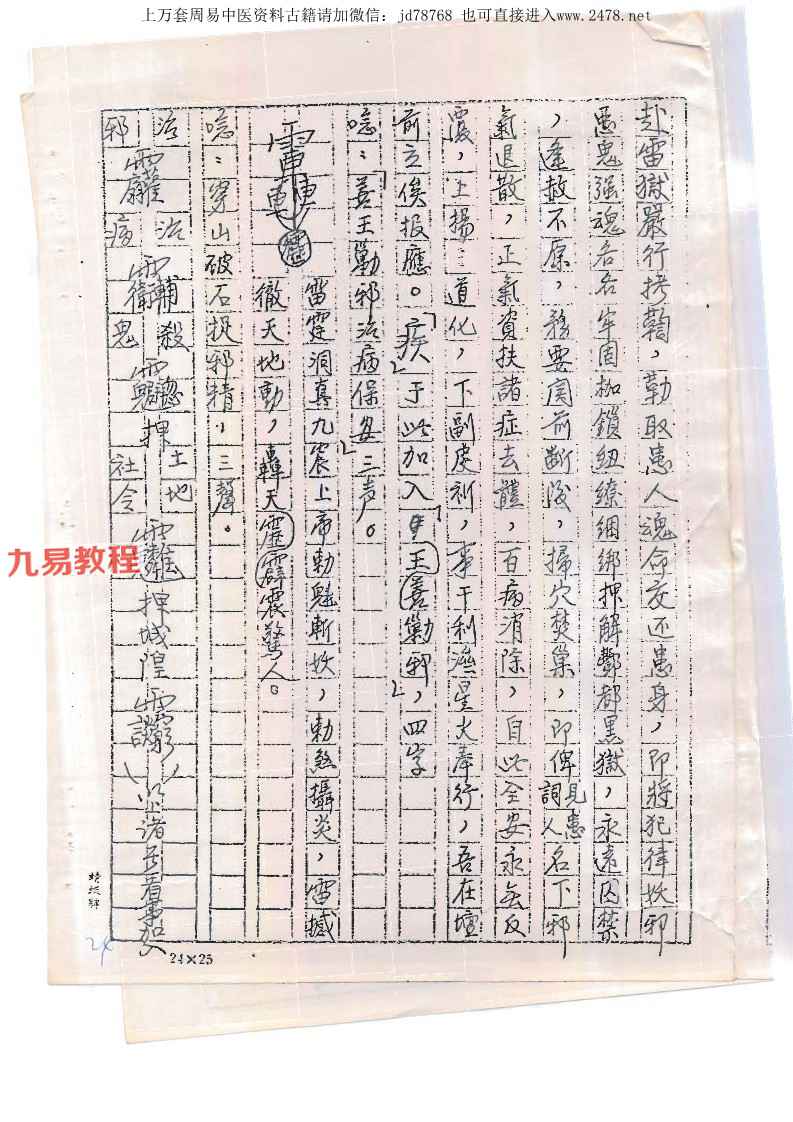 上万套周易中医资料古籍请加微信：jd78768 也可直接进入www.2478.net
赴雷獄嚴行拷鞫，勒取患人魂命交还患身，即將犯律妖邪
愚鬼强魂名名牢固枷鎖紐繚綑绑押解酆都黑獄，永遠囚禁
，逢赦不原，務要闰前断後，掃穴焚巢，即俾詞見人患名下邪
氣退散，正氣資扶諸症去體，百病消除，自此全安永無反
覆，上揚三道化，下副虔祈，事干利濟星火奉行，吾在壇
前立俟报應。「疾」于此加入「王善勦邪」四字
唸：「善王勦邪治病保安」三声。
雷霆洞真九宸上帝勅魁斬妖，勅煞攝炎，雷撼
徹天地動，轟天霹震驚人。
唸：穿山破石捉邪精，三聲。
治邪 治病 輔殺鬼 押土地社令 押城隍 以上諸 看事加入
九易教程
24×25
24